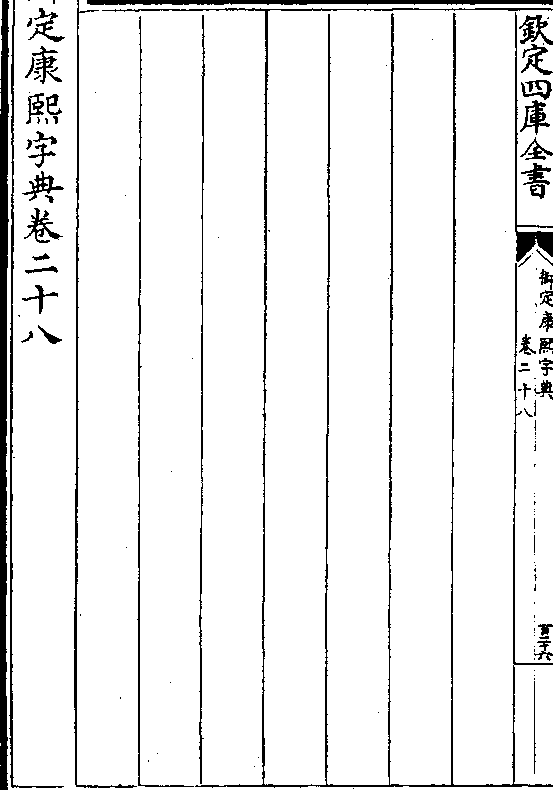 欽定四庫全書
御定康熙字典
卷二十八
百二十六
定康熙字典卷二十八